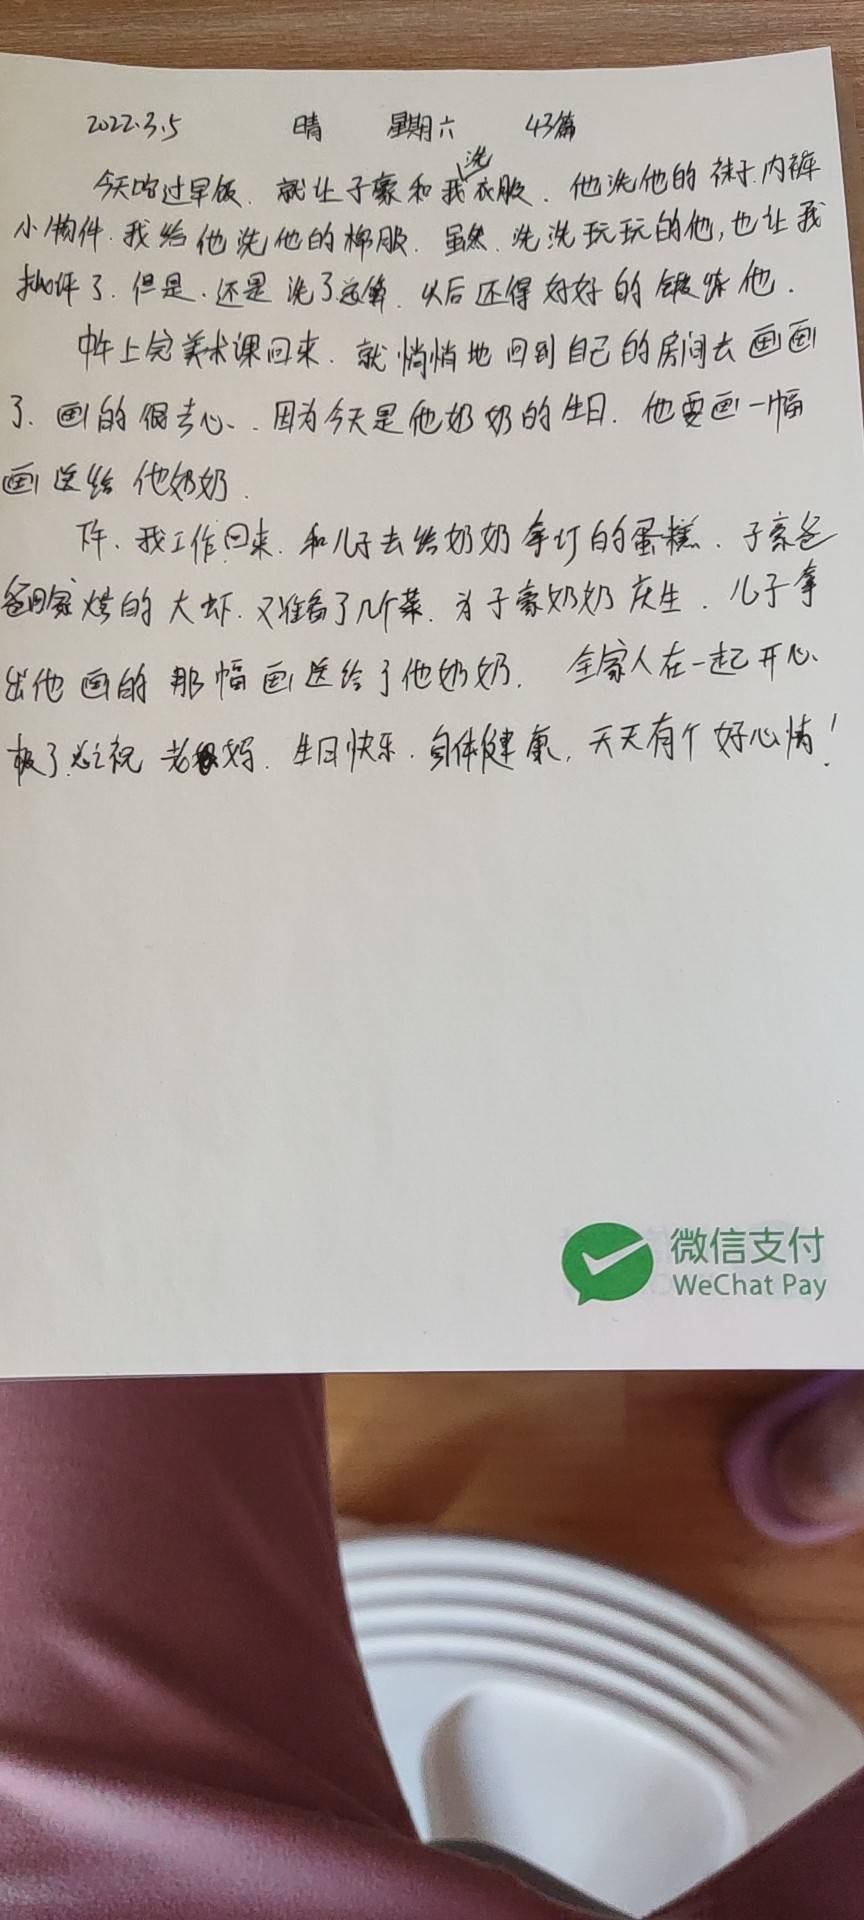 2022.3.5 晴 星期六 43篇
今天吃过早饭、就让子豪和我洗衣服、他洗他的袜子.内裤
小物件.我给他洗他的棉服.虽然.洗洗玩玩的他,也让我
批评了.但是.还是洗了.以后还得好好的锻炼他.
中午上完美术课回来.就悄悄地回到自己的房间去画画
了、画的很专心、.因为今天是他奶奶的生日.他要画一幅
画送给他奶奶.
下午、我工作回来.和儿子去给奶奶拿订的蛋糕、子豪爸
爸回家烤的大虾.又准备了几个菜.为子豪奶奶庆生.儿子拿
出他画的那幅画送给了他奶奶.全家人在一起开心
极了.总之祝老妈.生日快乐.身体健康,天天有个好心情!
微信支付
WeChat Pay